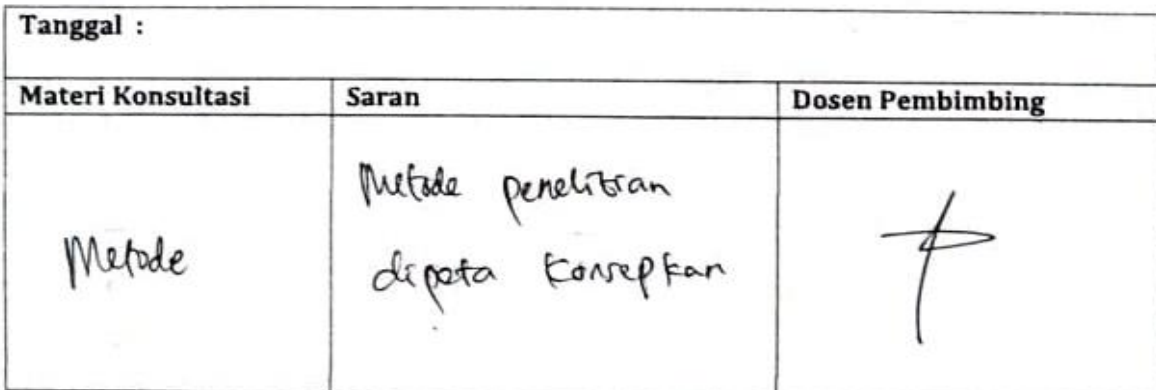 Tanggal :
Materi Konsultasi
Saran
Dosen Pembimbing
Metode
Metode penelitian
dipeta konsepkan